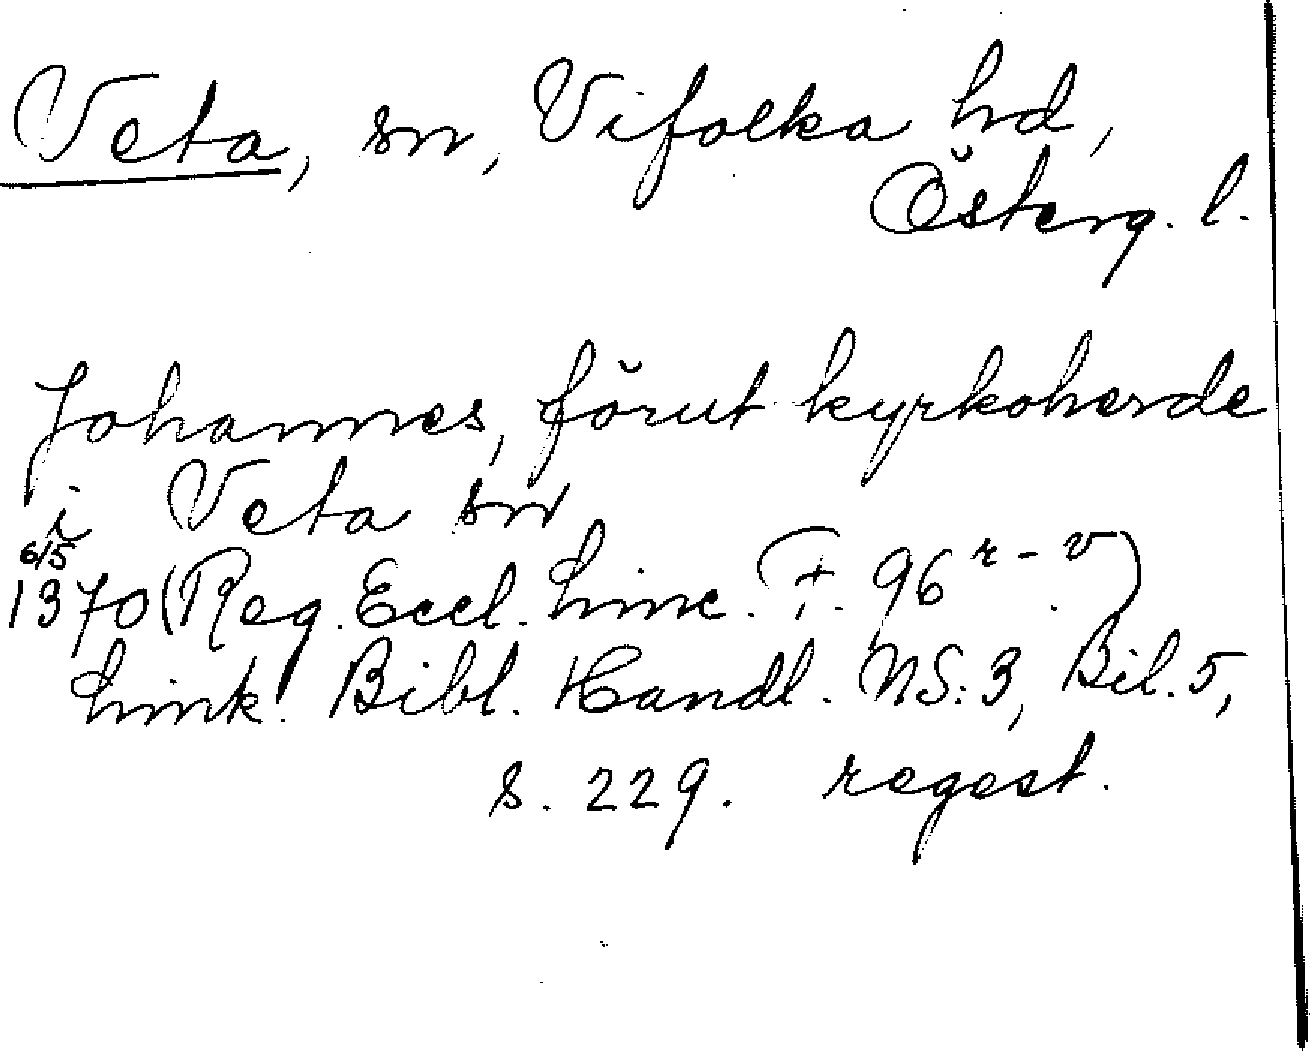 Veta, sn, Vifolka hd,
Österg. l.
Johannes, förut kyrkoherde
i Veta sn
6/5
1370 (Reg. Eccl. Linc. F. 96 r-v)
Link. Bibl. Handl. NS: 3, Bil. 5,
s. 229. regest.